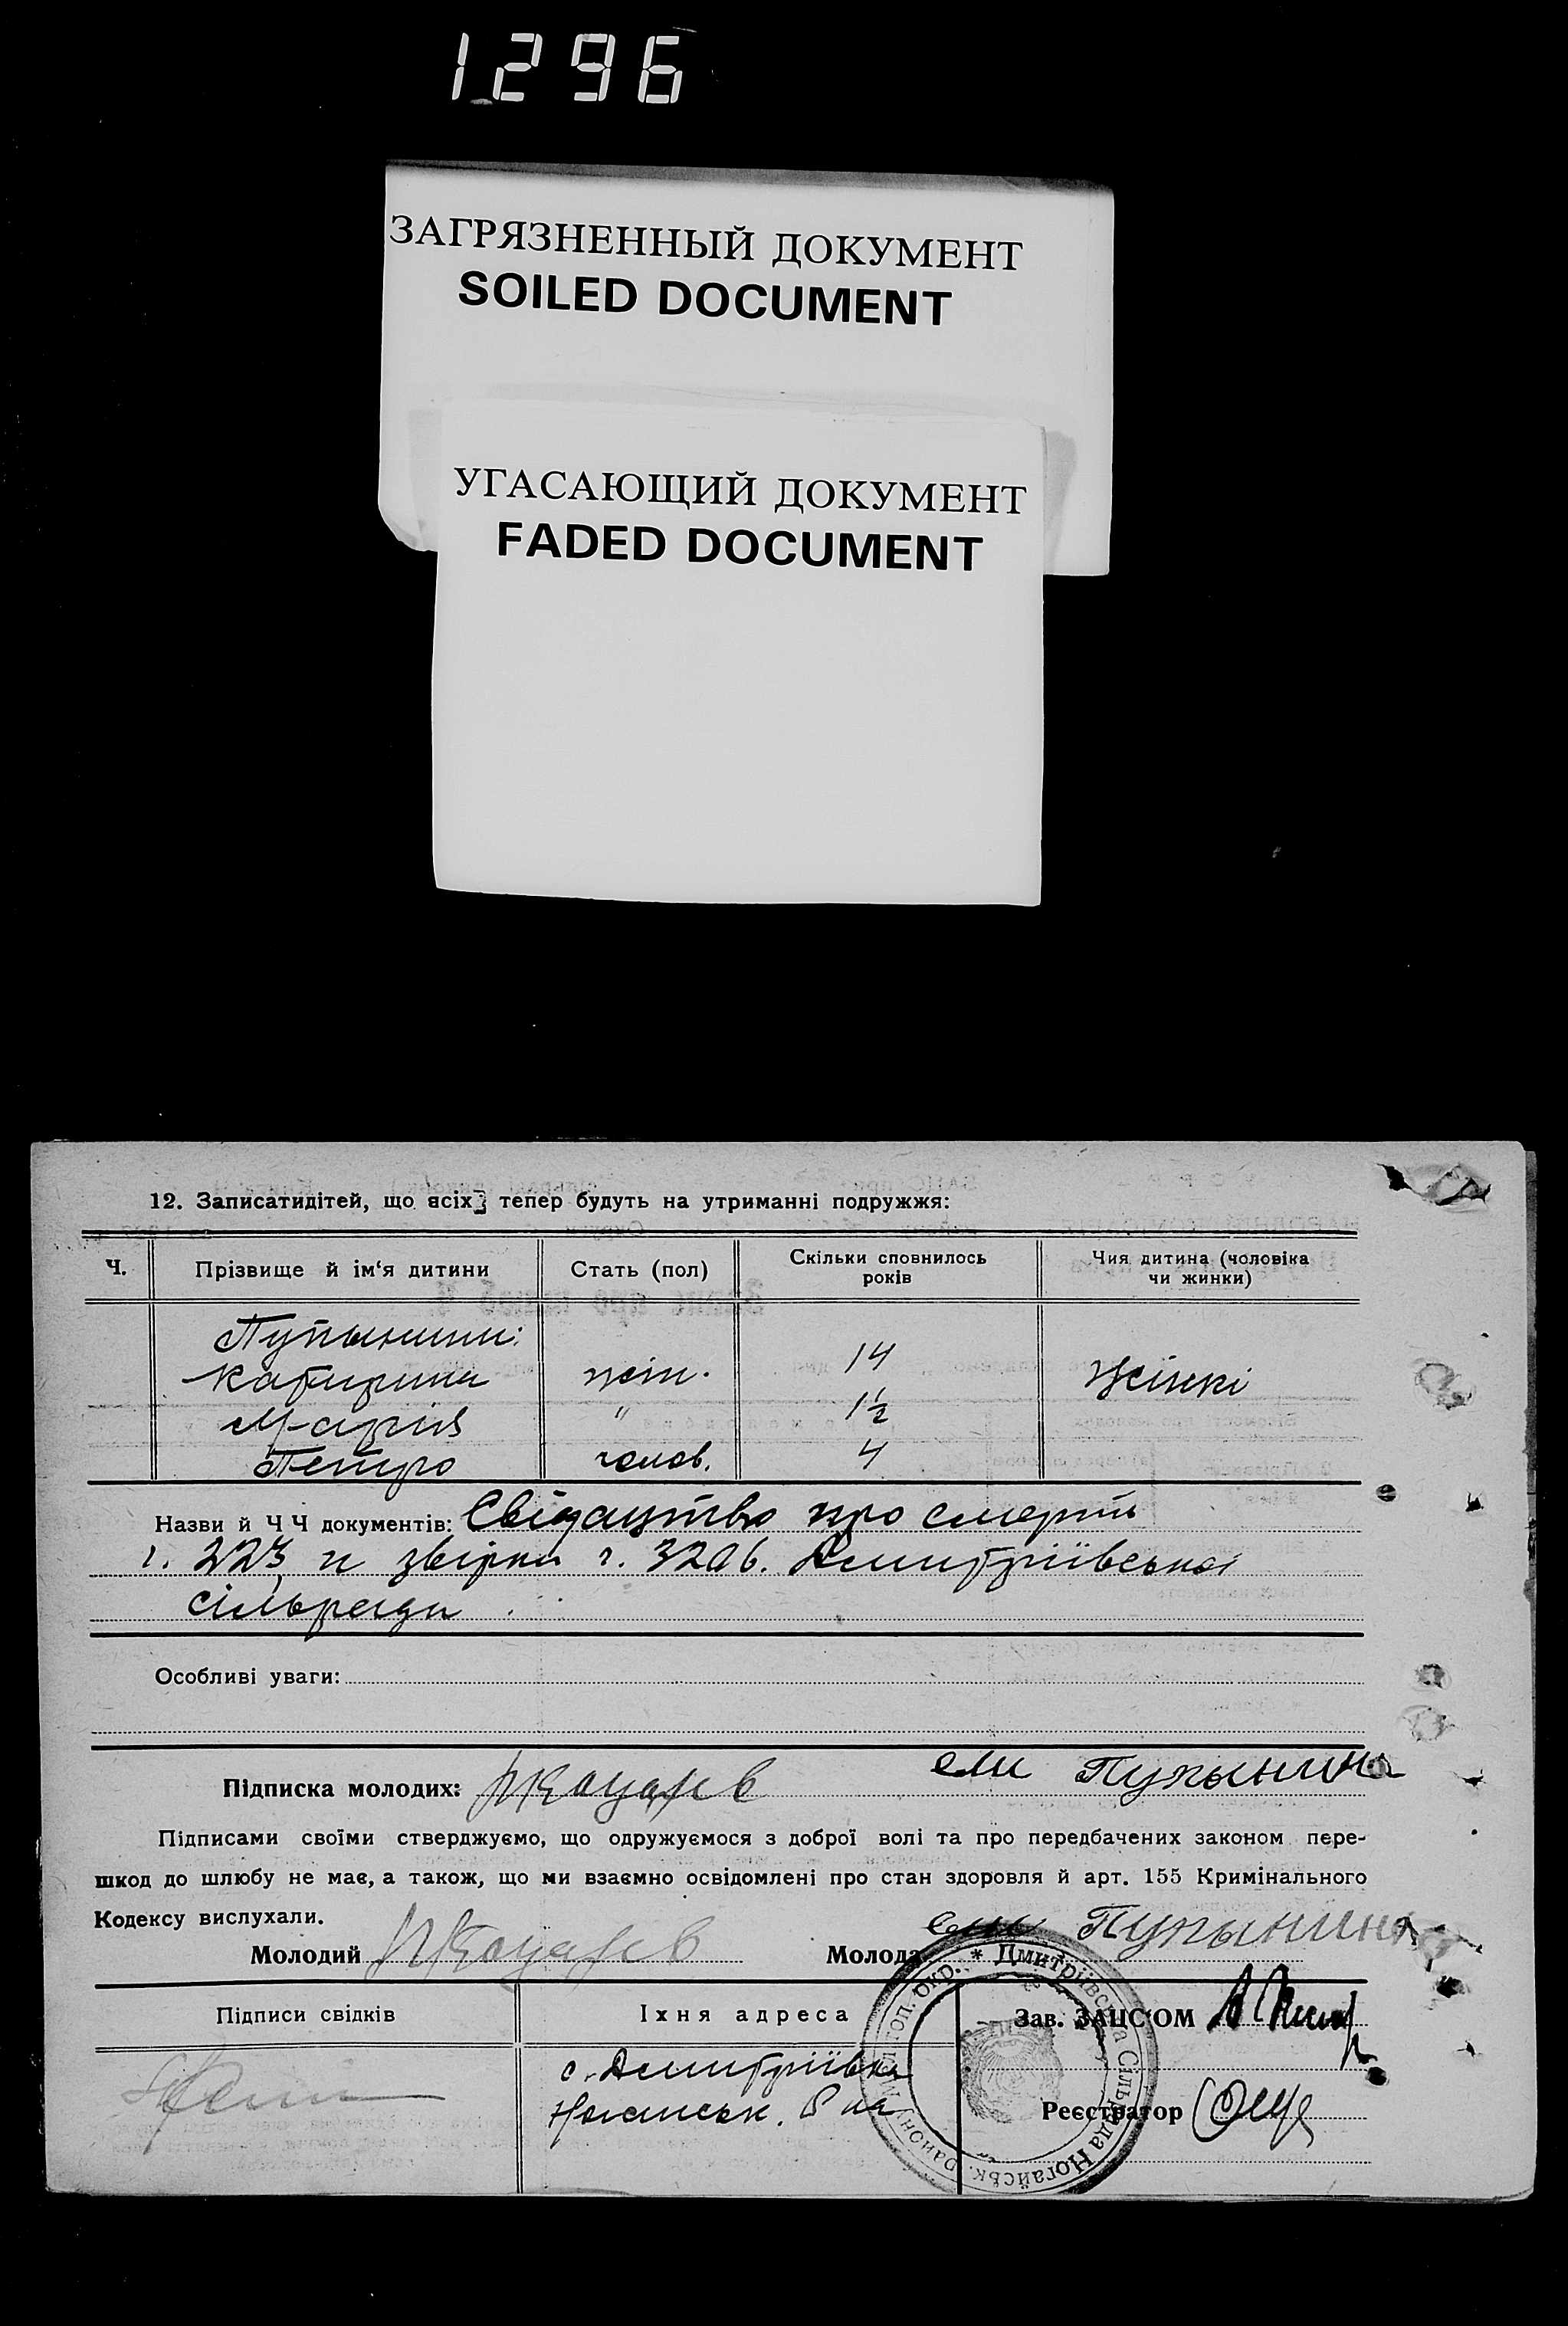 1296
ЗАГРЯЗНЕННЫЙ ДОКУМЕНТ
SOILED DOCUMENT
УГАСАЮЩИЙ ДОКУМЕНТ
FADED DOCUMENT
12. Записатидітей, що всіх тепер будуть на утриманні подружжя:
Ч. Прізвище й ім‘я дитини Стать (пол) Скільки сповнилось років Чия дитина (чоловіка чи жинки)
Пупынини:
Катирина жін. 14 жінкі
Марія " 1½
Петро чолов. 4
Назви й ЧЧ документів: Свідацтво про смерть
ч. 223 и звірки ч. Дмитріівської
сільради
Особливі уваги:
Підписка молодих: Пупынина
Підписами своїми стверджуємо, що одружуємося з доброї волі та про передбачених законом пере-
шкод до шлюбу не має, а також, що ми взаємно освідомлені про стан здоровля й арт. 155 Кримінального
Кодексу вислухали.
Молодий Молода Пупынина
Підписи свідків Їхня адреса Зав. ЗАЦС‘ОМ
с. Дмитріївка
Ногайськ. Р на Реєстратор
* Дмитріївська Сільрада Ногайськ. район окр.